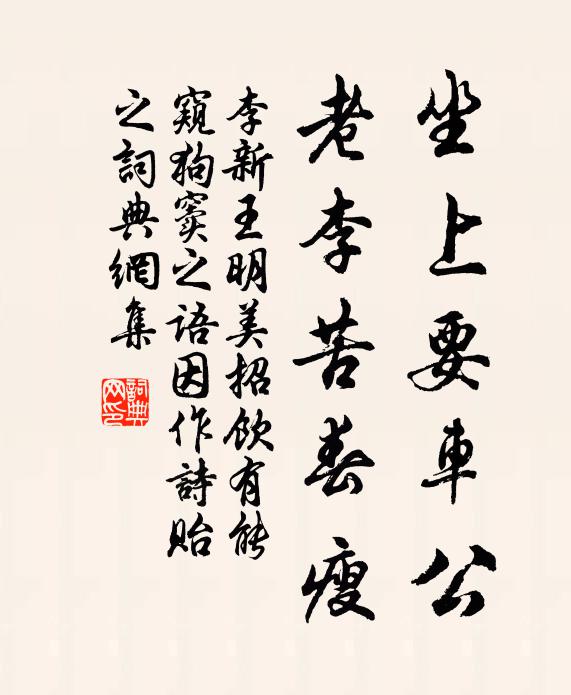 坐上要車公
老李苦春瘦
李新王明美招飲有能
窺狗竇之語因作詩貽
之詞典網集
詞典
网印